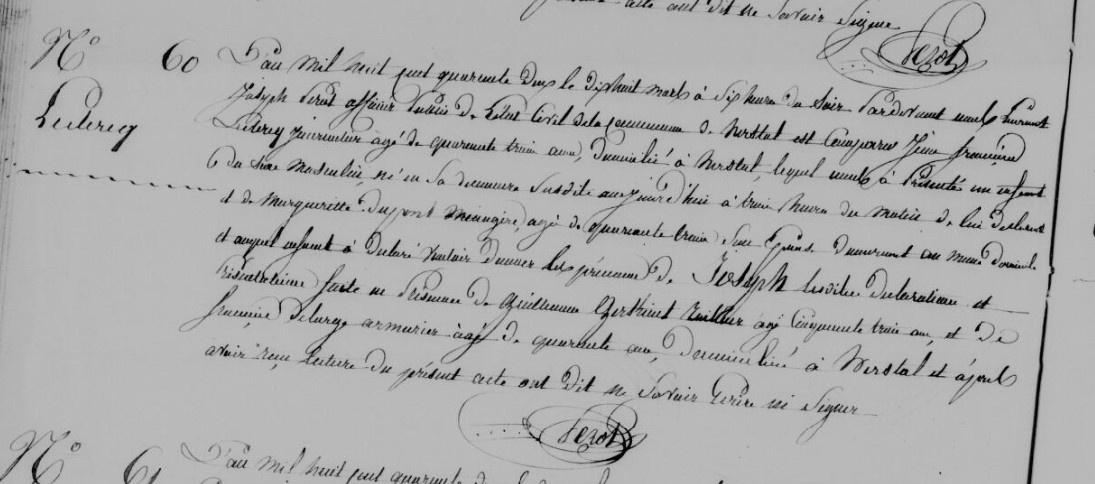 présent acte ont dit ne Savoir Signer
Perot
N° 60 L'an mil huit cent quarante Deux le Dixhuit mars à Six heures du Soir Pardevant nous Laurent
Leclercq Joseph Perot officier Public De L'état Civil de la Commune De herstal est Comparu
Leclercq journalier agé De quarante trois ans, Domicilié à herstal, lequel nous à Présenté un enfant
du Sexe masculin, né en Sa demeure Susdite aujourd'hui à trois heures du matin De lui déclarant
et De Marguerite Dupont ménagère, agé De quarante trois Son Epouse Demeurant au même domicile
et auquel enfant à Déclaré vouloir Donner les prénoms De Joseph lesdites Declaration et
Présentation faite en Présence De Guillaume houilleur agé Cinquante trois ans, et De
armurier âgé De quarante ans, Domicilié à herstal et après
avoir reçu Lecture du présent acte ont Dit ne Savoir Ecrire ni Signer
Perot
N° 61 L'an mil huit cent quarante